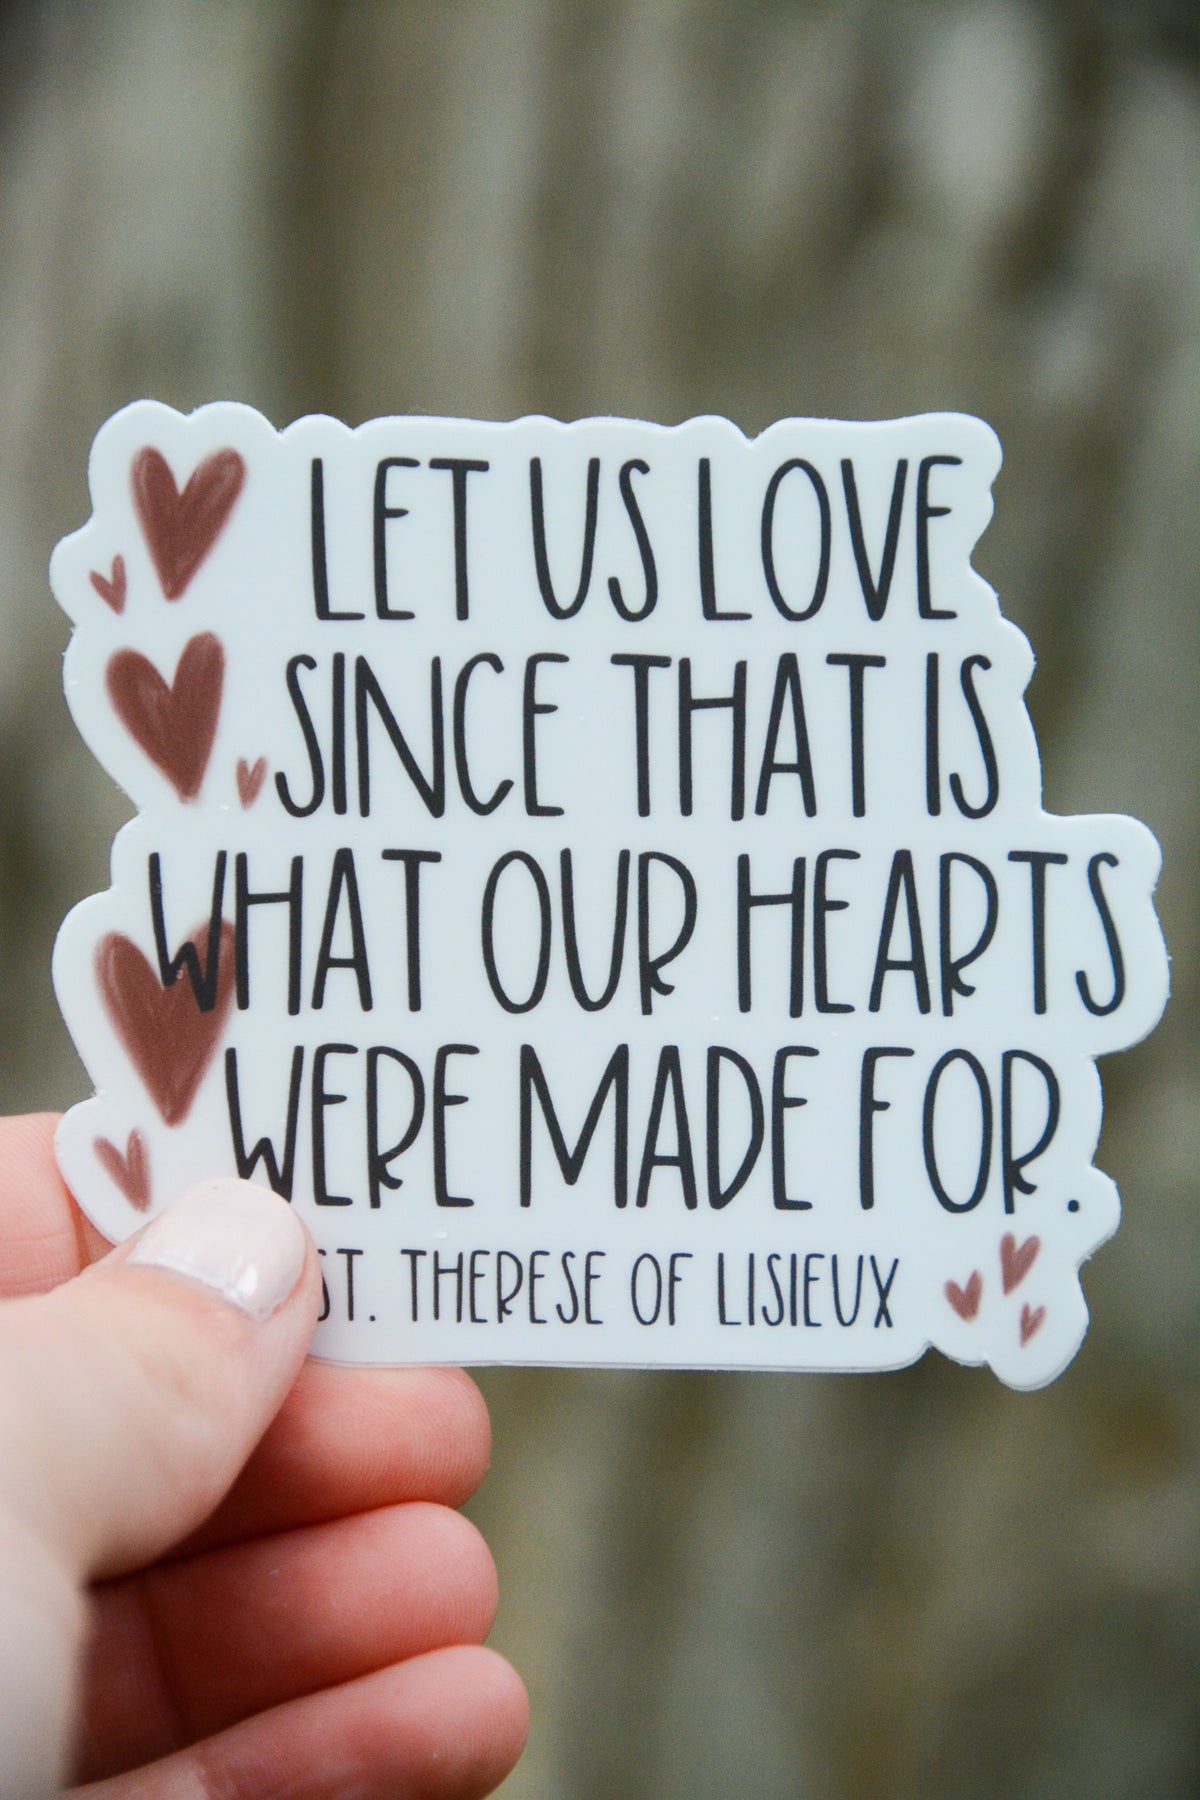 LET US LOVE
SINCE THAT IS
WHAT OUR HEARTS
WERE MADE FOR.
ST. THERESE OF LISIEUX